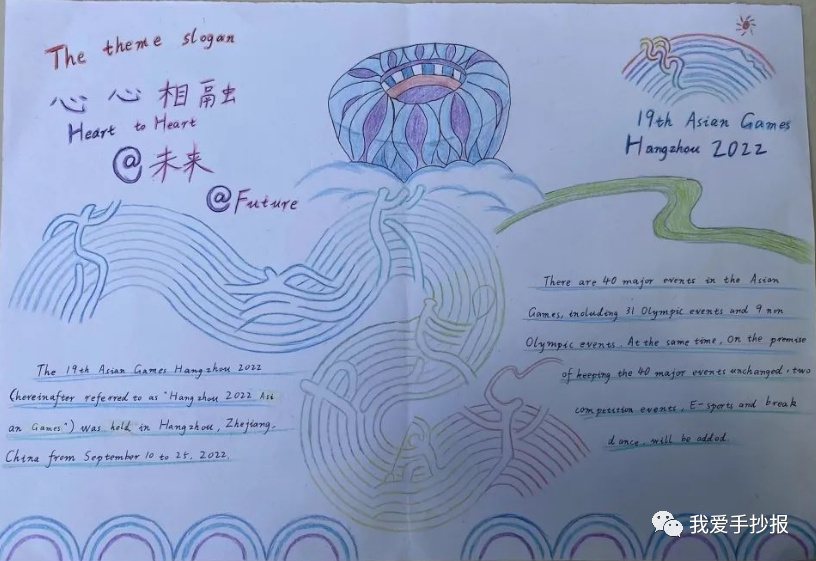 The theme slogan
心心相融
Heart to Heart
@未来
@Future
19th Asian Games
Hangzhou 2022
The 19th Asian Games Hangzhou 2022
(hereinafter referred to as "Hangzhou 2022 Asi
an Games") was held in Hangzhou, Zhejiang,
China from September 10 to 25, 2022.
There are 40 major events in the Asian
Games, including 31 Olympic events and 9 non
Olympic events. At the same time, On the premise
of keeping the 40 major events unchanged, two
competition events, E-sports and break
dance, will be added.
我爱手抄报